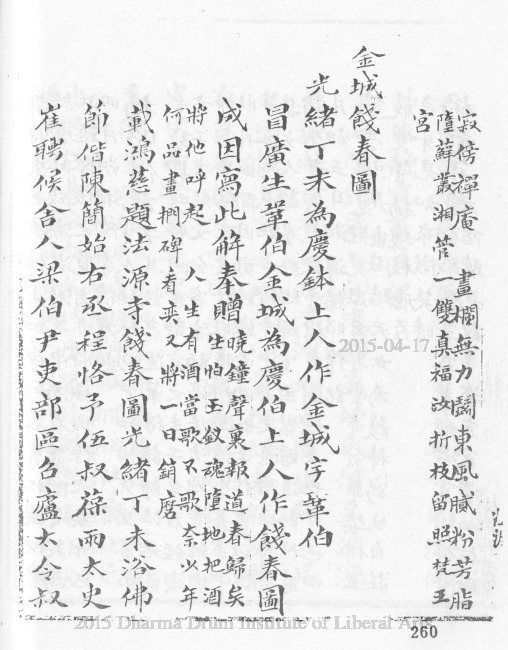 寂傍禪庵　畫欄無力鬪東風膩粉芳脂
墮蘚叢湘管　雙真福汝折枝留照梵王
宮
金城餞春圖
光緒丁未為慶鉢上人作金城字鞏伯
冒廣生鞏伯金城為慶伯上人作餞春圖
成因寫此解奉贈曉鐘聲裏報道春歸矣
生怕玉釵魂墮地把酒
將他呼起　人生有酒當歌不歌奈少年
何品畫捫碑看弈又將一日銷磨
載鴻慈題法源寺餞春圖光緒丁未浴佛
節偕陳簡始右丞程恪予伍叔葆兩太史
崔聘侯舍人梁伯尹吏部區名廬大令叔
2015-04-17
2015 Dharma Drum Institute of Liberal Arts
260